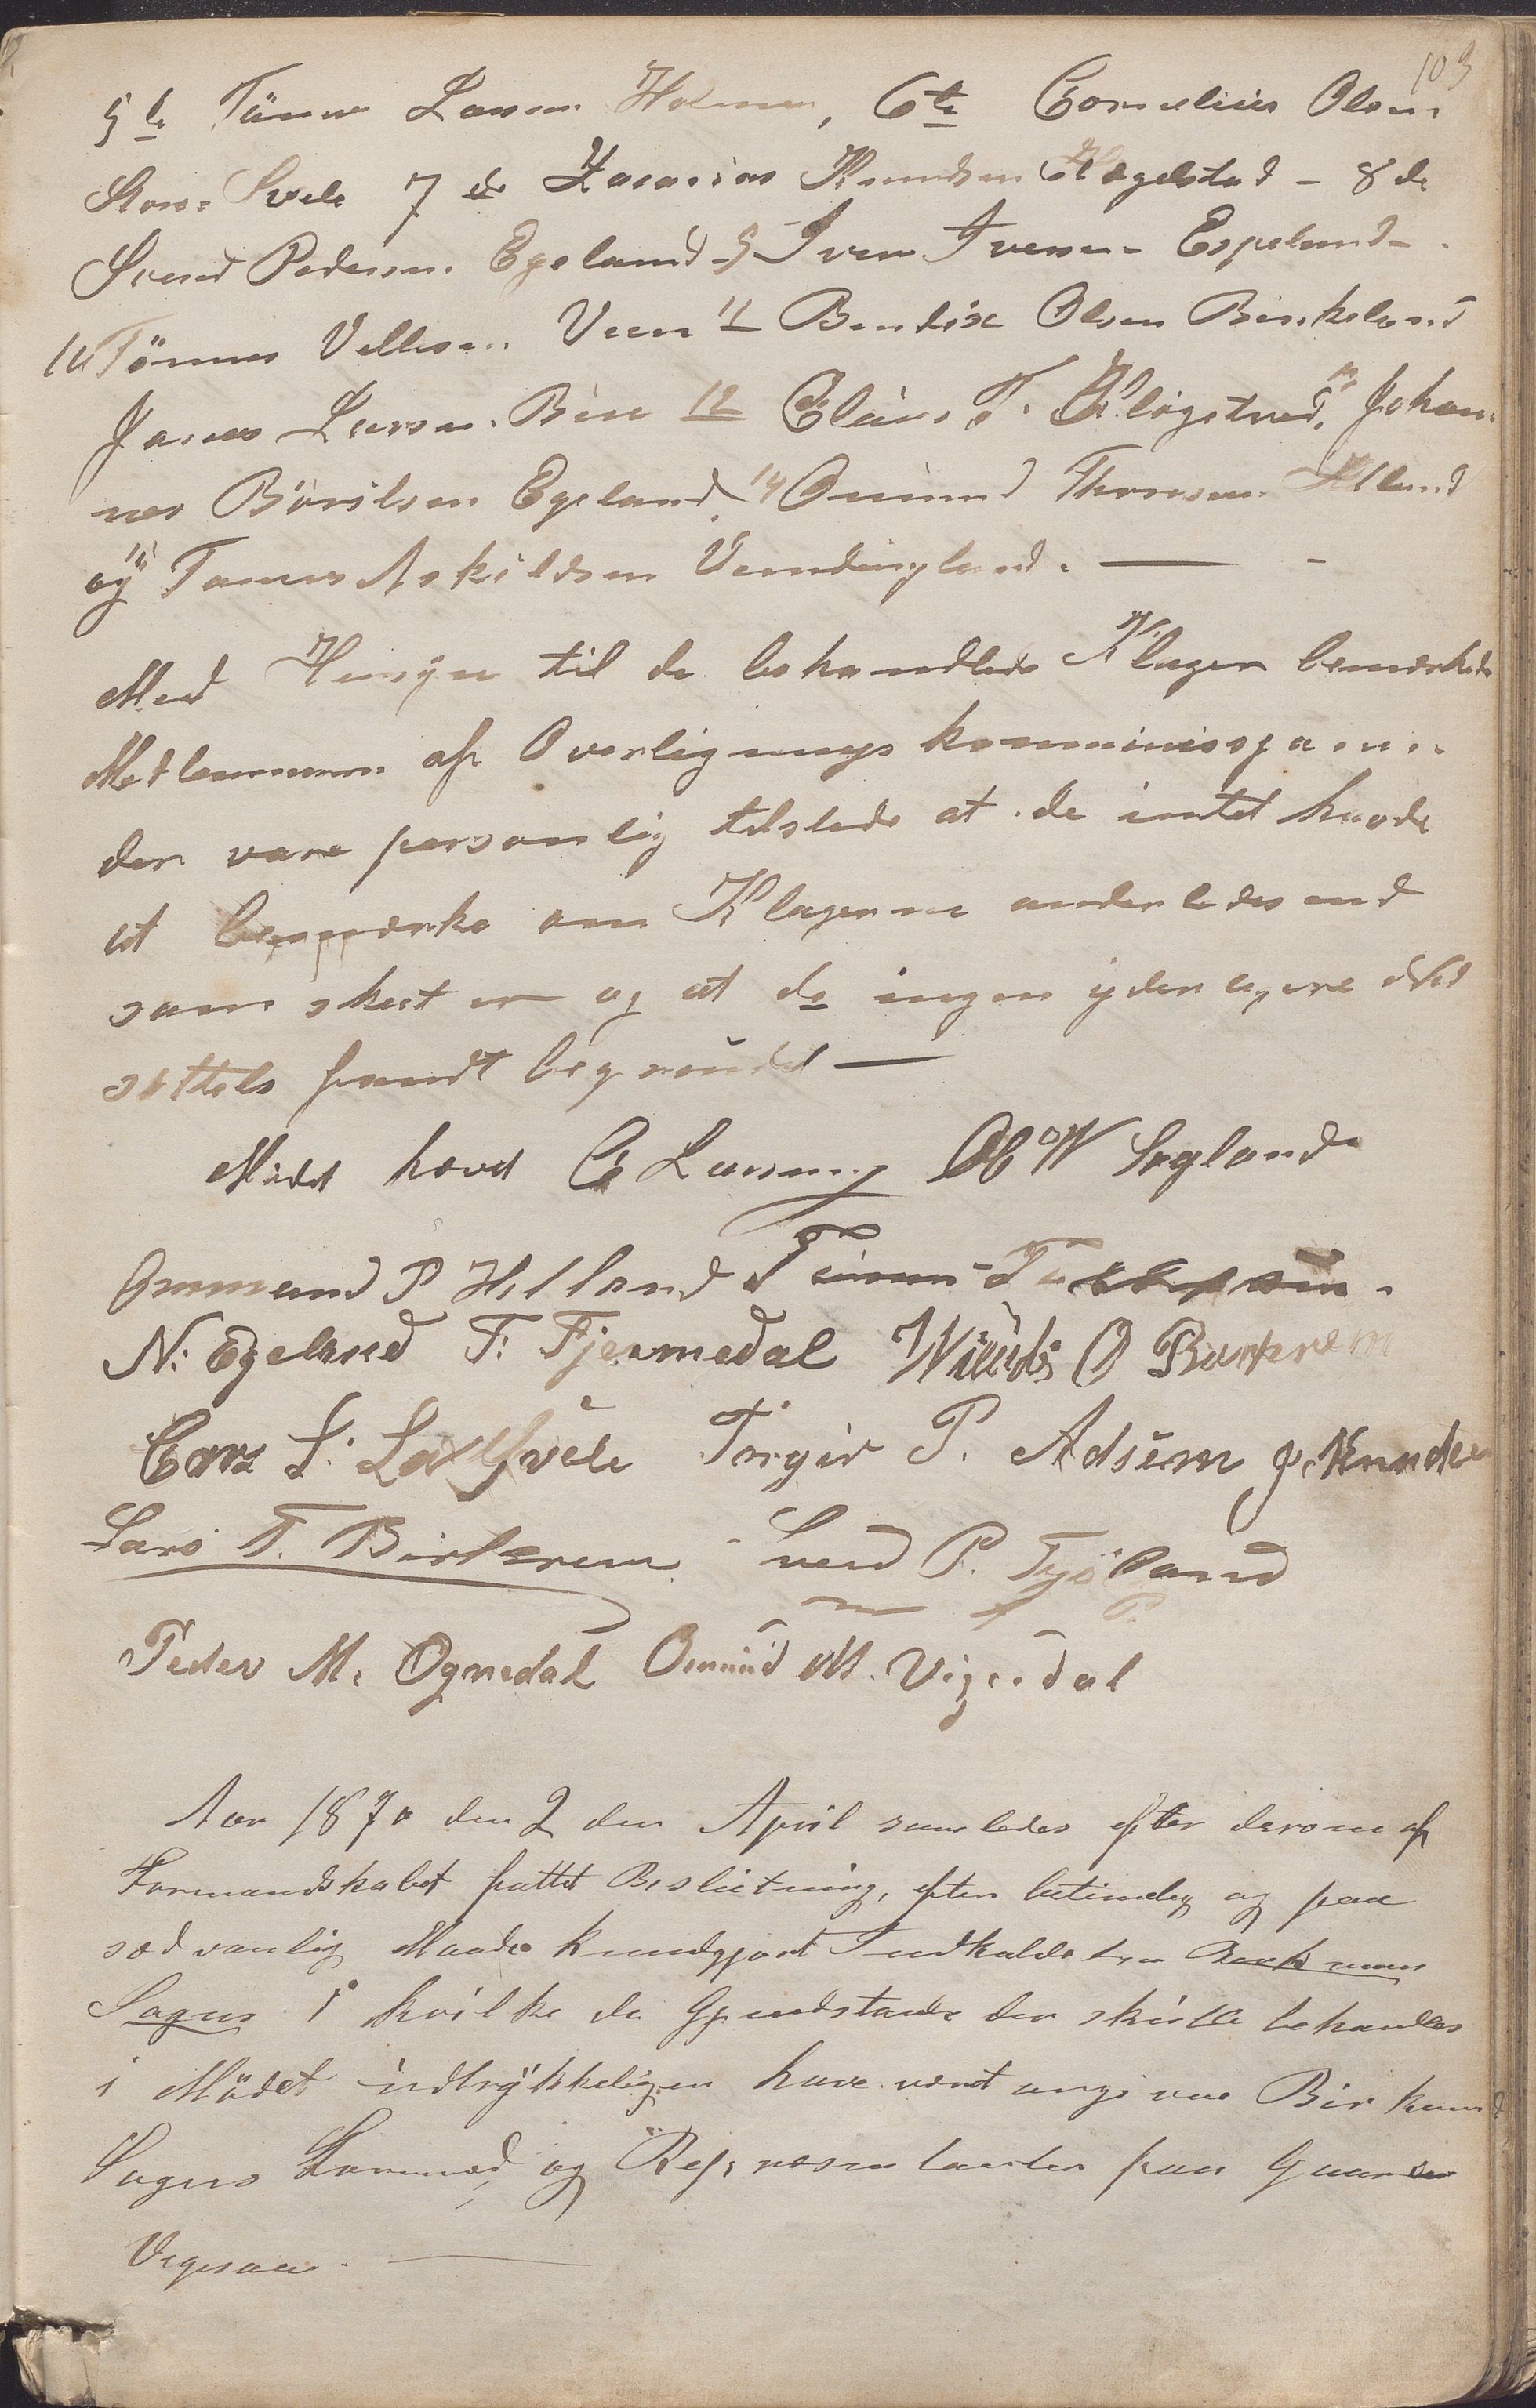 103
5te Tönnes Larsen Holmen, 6te Cornelius Olsen
Store Svele 7de Zacarias Knudsen Hægelstad - 8de
Svend Pedersen Egeland - 9 Iver Iversen Espeland -
10 Tönnes Villesen Veen 11 Bendix Olsen Birkeland
Jonas Larsen Bue 12 Claus T. Kløgetved, 13 Johan-
nes Börilsen Egeland, 14 Omund Thorsen Helland
og 15 Tønnes Askildsen Vendingland. —
Med Hensyn til de behandlede Klager bemærkede
Medlemmerne af Overligningskommissjonen
der vare personlig tilstede at de intet havde
at bemærke om Klagerne anderledes end
som skeet er og at de ingen yderligere Ned
sættelse fandt begrundet —
Mödet hævet C Larsen Ol W Søyland
Ommund P Helland Tönnes
N. Egeland T. Fjermedal O Birkrem
Cors L. Lax Svele Torger P. Adsem J. Knudsen
Lars T. Birkrem Svend P. Tjöland
Peder M. Ognedal Omund M. Vigesdal
Aar 1870 den 2den April samledes efter derom af
Formandskabet fattet Beslutning, efter betimelig og paa
sædvanlig Maade kundgjort Indkaldelse Birkrems
Sogns i hvilke de Gjenstande der skulle behandles
i Mödet udtrykkeligen have været angivne Birkrems
Sogns Formænd og Repræsentanter paa Gaarden
Vigesaa. —